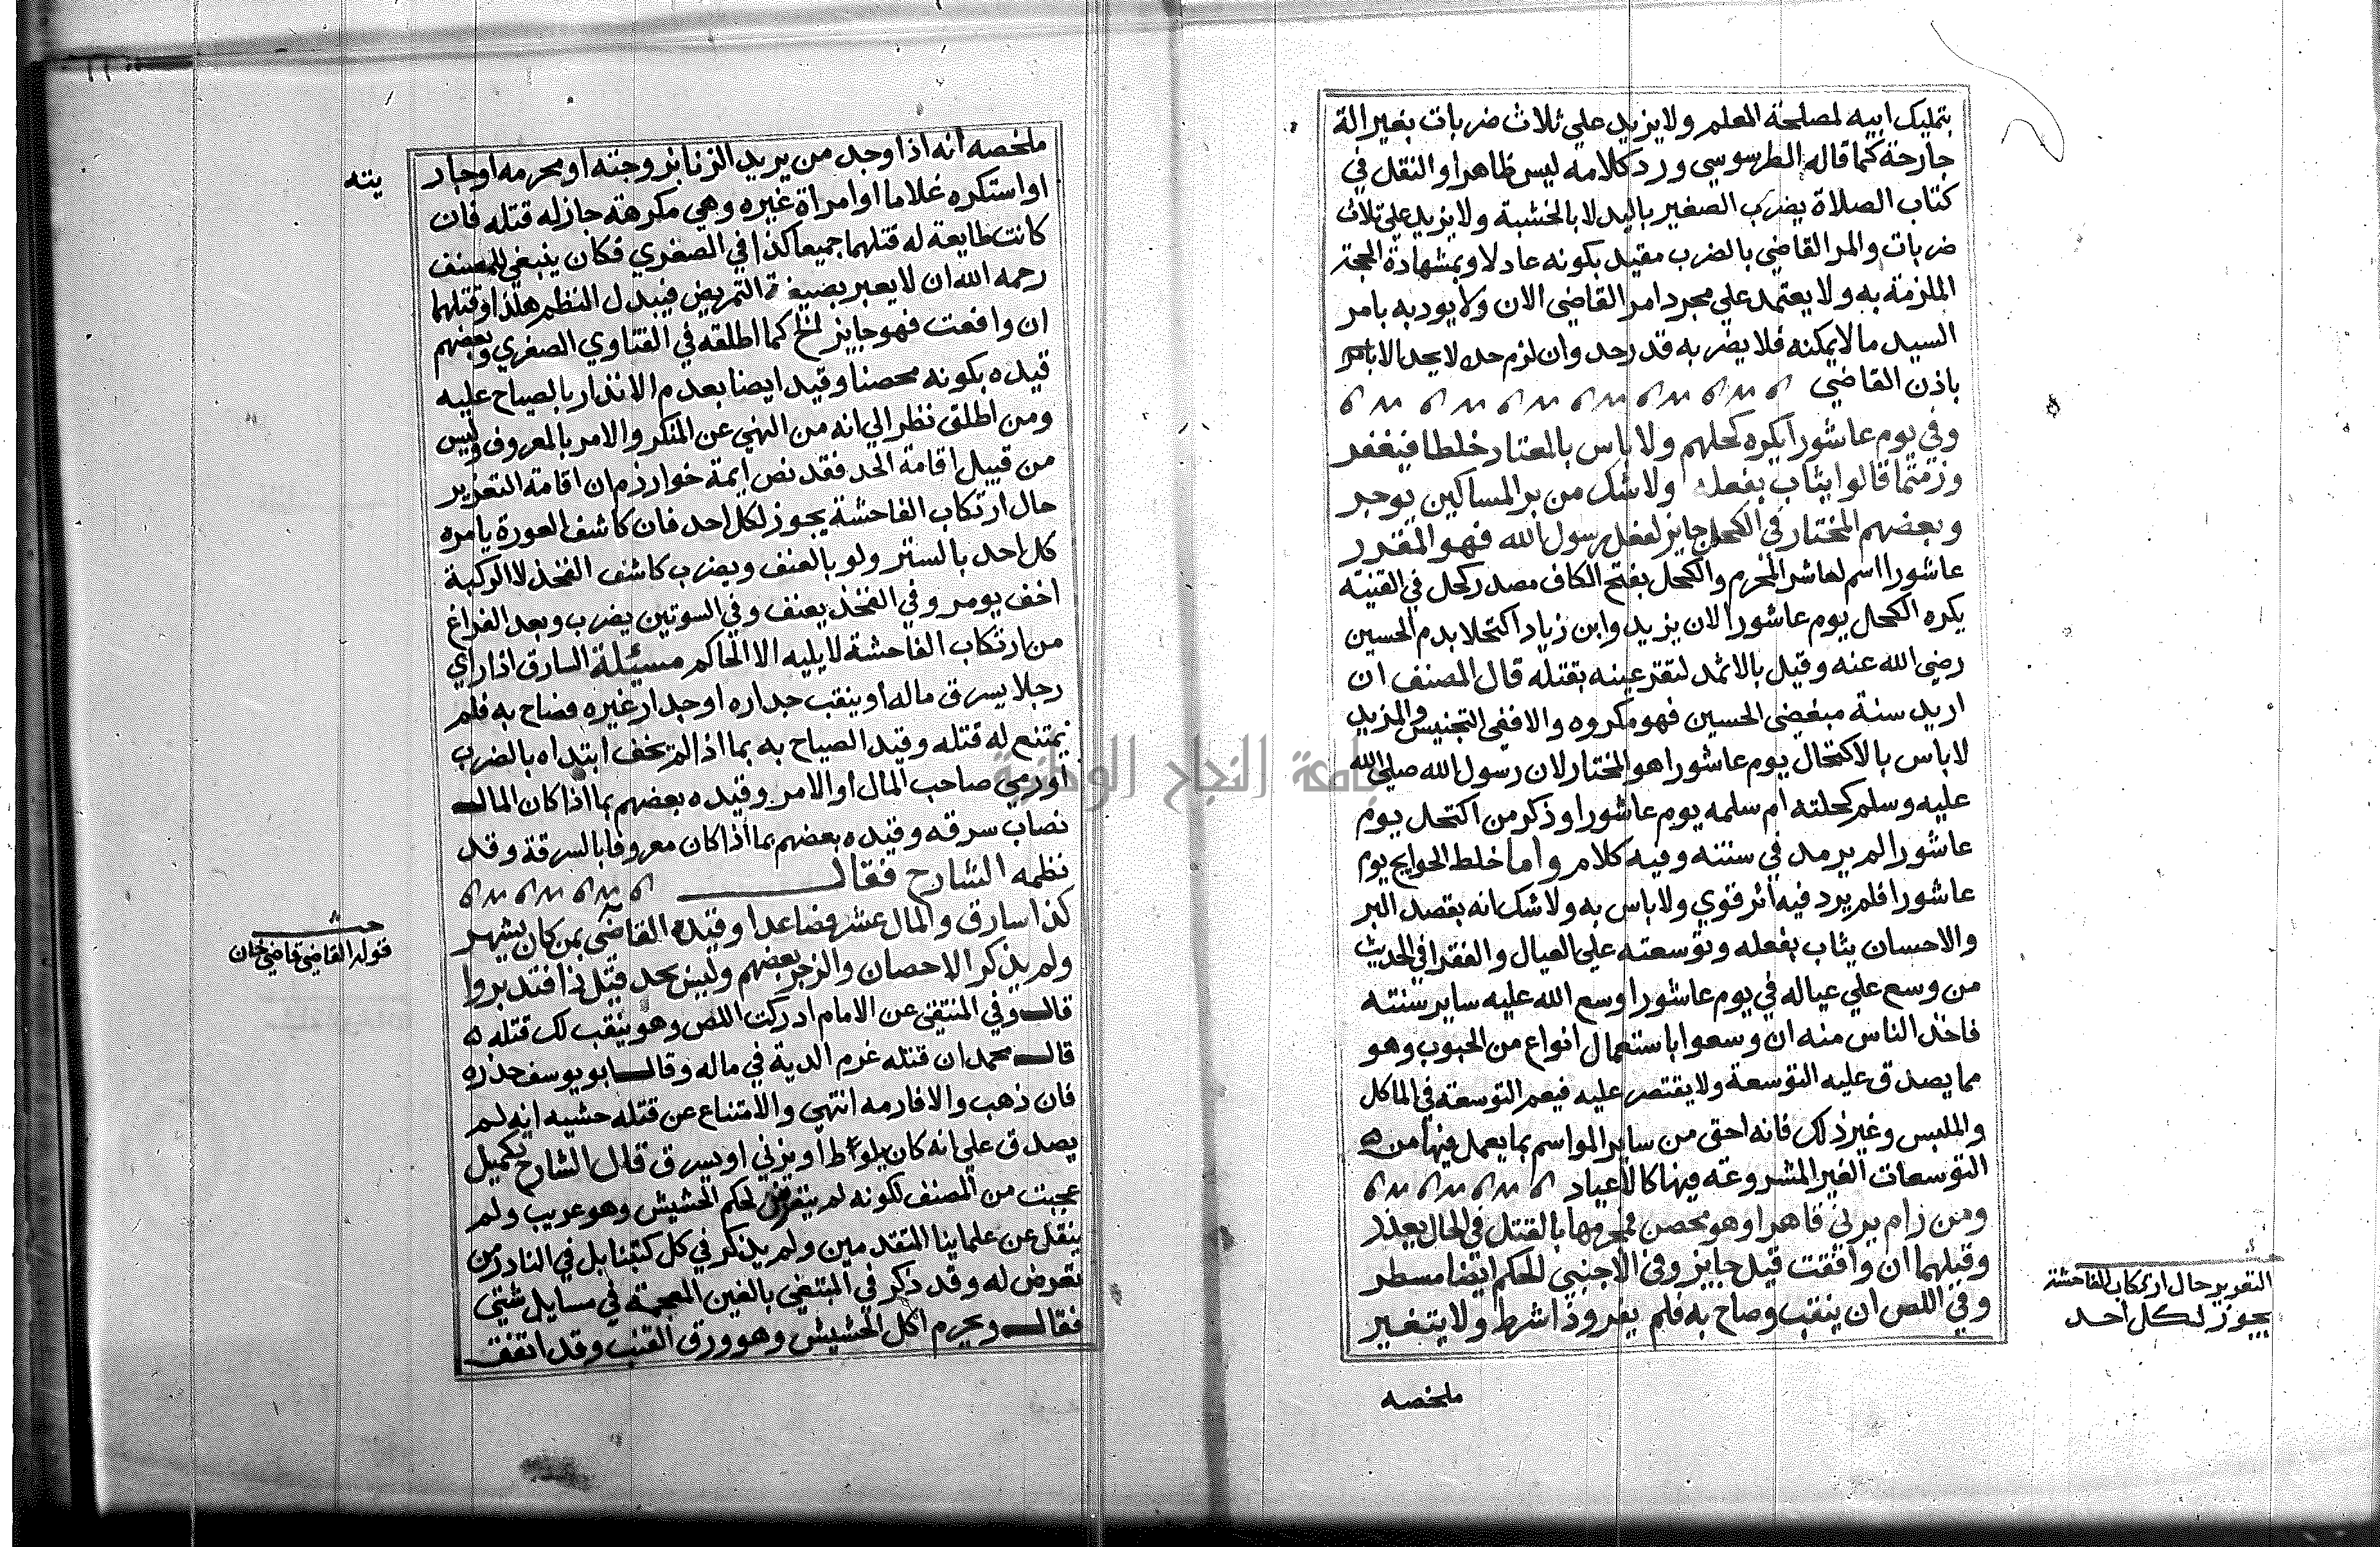 بتمليك ابيه لمصلحة المعلم ولا يزيد علي ثلاث ضربات بغير الة
جارحة كما قاله الطرسوسي ورد كلامه ليس ظاهرا والنقل في
كتاب الصلاة يضرب الصغير باليد لا بالخشبة ولا يزيد علي ثلاث
ضربات والمر القاضي بالضرب مقيد بكونه عادلا وبمشهادة الحجة
الملزمة به ولا يعتمد علي مجرد امر القاضي الان ولا يودبه بامر
السيد ما لا يمكنه فلا يضربه قد رحد وان لزم حد لا يحد الا
باذن القاضي
وفي يوم عاشورا يكره كحلهم ولا باس بالمعتاد خلطا فيغفر
قالوا يثاب بفعله ولا شك من بر المساكين يوجر
وبعضهم المختار في الكحل جايز لفعل رسول الله فهو المقرر
عاشورا اسم لعاشر المحرم والكحل بفتح الكاف مصدر كحل في القنية
يكره الكحل يوم عاشورا لان يزيد وابن زياد اكتحلا بدم الحسين
رضي الله عنه وقيل بالاثمد لتقر عينه بقتله قال المصنف ان
اريد سنة مبغضي الحسين فهو مكروه والا ففي التجنيس والمزيد
لا باس بالاكتحال يوم عاشورا هو المختار لان رسول الله صلي الله
عليه وسلم كحلته ام سلمه يوم عاشورا وذكر من اكتحل يوم
عاشورا لم يرمد في سنته وفيه كلام واما خلط الحوايج يوم
عاشورا فلم يرد فيه اثر قوي ولا باس به ولا شك انه بقصد البر
والاحسان يثاب بفعله وتوسعته علي العيال والفقرا في الحديث
من وسع علي عياله في يوم عاشورا وسع الله عليه ساير سنته
فاخذ الناس منه ان وسعوا باستعمال انواع من الحبوب وهو
مما يصدق عليه التوسعة ولا يقتصر عليه فيعم التوسعة في الماكل
والملبس وغير ذلك فانه احق من ساير المواسم بما يعمل فيها من
التوسعات الغير المشروعة فيها كالاعياد
ومن رام يزني قاهرا وهو محصن بالقتل في الحال يعذر
وقتلهما ان وافقت قيل جايز وفي الاجنبي للحكم ايضا مسطر
وفي اللص ان ينقب وصاح به فلم يفر وذا شرط ولا يتغير
ملخصه
التعزير حال ارتكاب الفاحشة
يجوز لكل احد
ملخصه انه اذا وجد من يريد الزنا بزوجته او محرمه او جار
يته
او استكره غلاما او امراة غيره وهي مكرهة جاز له قتله فان
كانت طايعة له قتلهما جميعا كذا في الصغري فكان ينبغي للمصنف
رحمه الله ان لا يعبر بصيغة التمريض فيبدل النظم هكذا وقتلهما
ان وافقت فهو جايز الخ كما اطلقه في الفتاوي الصغري وبعضهم
قيده بكونه محصنا وقيد ايضا بعدم الانذار بالصياح عليه
ومن اطلق نظر الي انه من النهي عن المنكر والامر بالمعروف وليس
من قبيل اقامة الحد فقد نص ايمة خوارزم ان اقامة التعزير
حال ارتكاب الفاحشة يجوز لكل احد فان كاشف العورة يامره
كل احد بالستر ولو بالعنف ويضرب كاشف الفخذ لا الركبة
اخف يومر وفي الفخذ يعنف وفي السوتين يضرب وبعد الفراغ
من ارتكاب الفاحشة لا يليه الا الحاكم مسئلة السارق اذا راي
رجلا يسرق ماله او ينقب جداره او جدار غيره فصاح به فلم
يمتنع له قتله وقيد الصياح به بما اذا لم يخف ابتداه بالضرب
او رمي صاحب المال او الامر وقيده بعضهم بما اذا كان المال
نصاب سرقه وقيده بعضهم بما اذا كان معروفا بالسرقة وقد
نظمه الشارح فقال
كذا سارق والمال عشر فصاعدا وقيده القاضي بمن كان يشهر
ولم يذكر الاحصان والزجر بعضهم وليس بحد قيل ذا فتدبروا
قوله القاضي قاضي خان
قال وفي المنتقي عن الامام ادركت اللص وهو ينقب لك قتله
قال محمد ان قتله غرم الدية في ماله وقال ابو يوسف حذره
فان ذهب والا فارمه انتهي والامتناع عن قتله خشية انه لم
يصدق علي انه كان يلوط او يزني او يسرق قال الشارح تكميل
عجبت من المصنف لكونه لم يتعرض لحكم الحشيش وهو عريب ولم
ينقل عن علماينا المتقدمين ولم يذكر في كل كتبنا بل في النادر من
تعرض له وقد ذكر في المبتغي بالغين المعجمة في مسايل شتي
فقال ويحرم اكل الحشيش وهو ورق القنب وقد اتفق
جامعة النجاح الوطنية